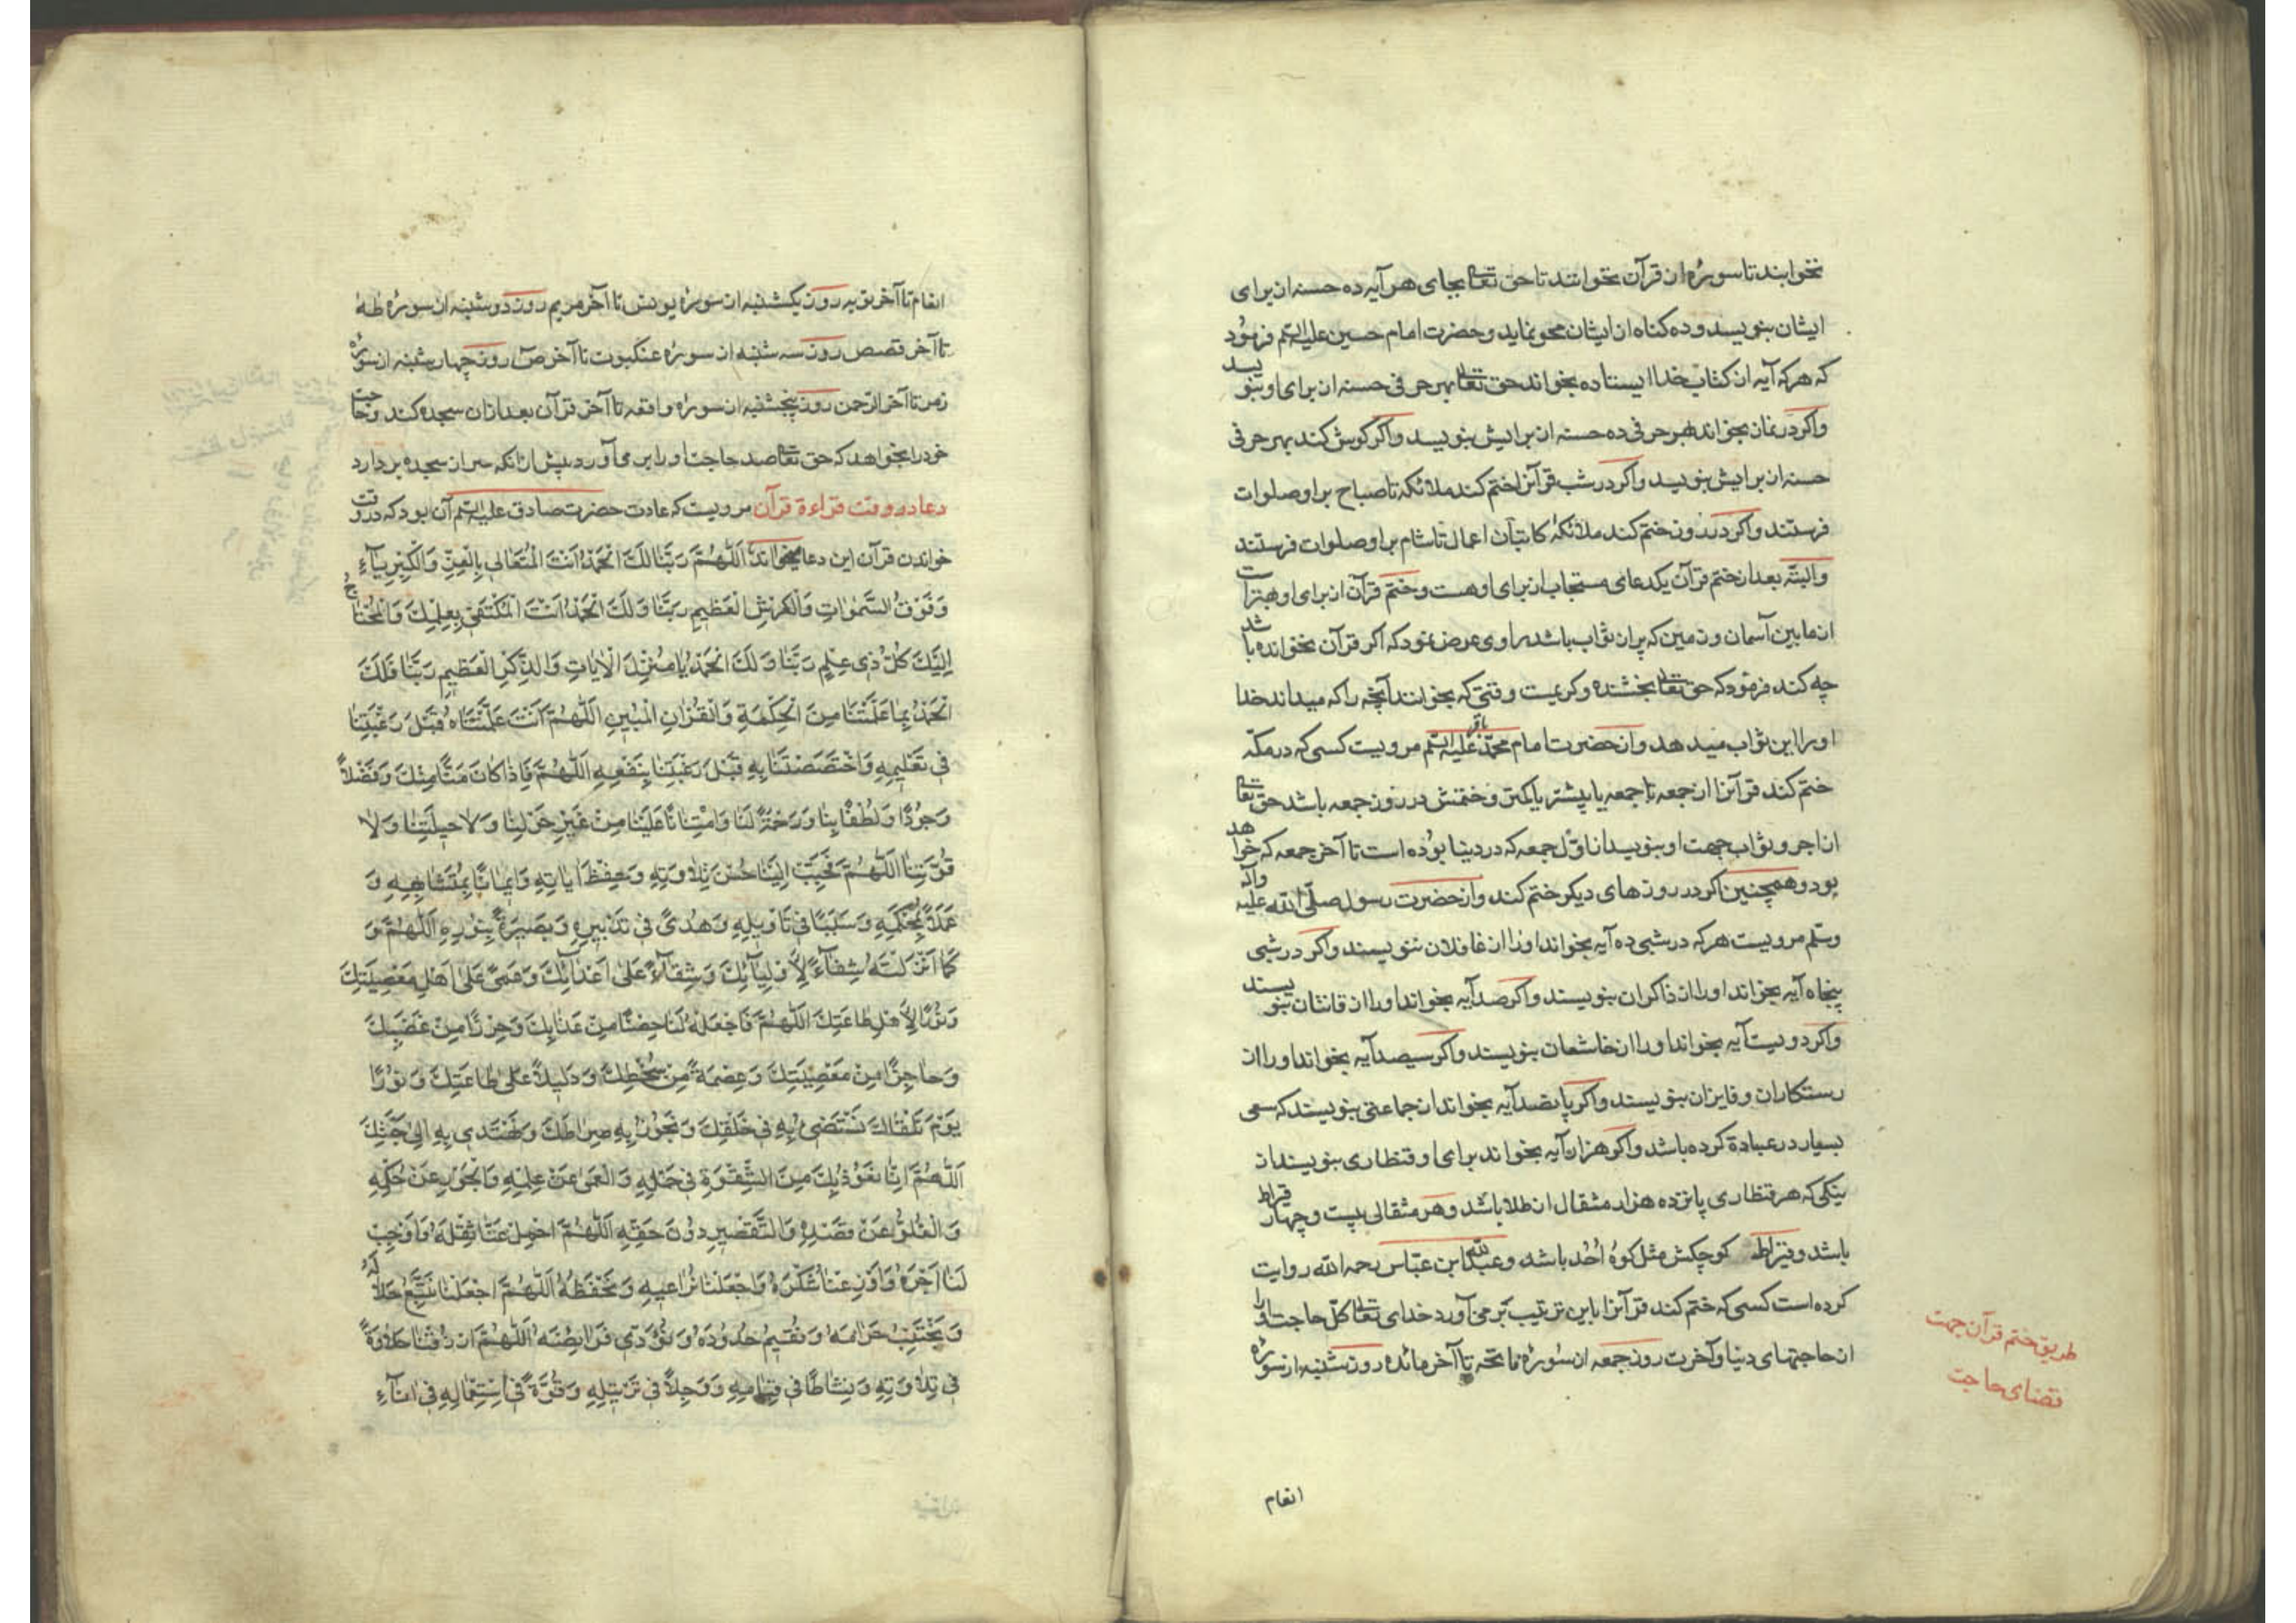 نخوابند تا سورۀ از قرآن بخوانند تا حق تعالی بجای هر آیه ده حسنه از برای
ایشان بنویسد و ده کناه از ایشان محو نماید و حضرت امام حسین علیه السلم فرمود
که هر که آیه از کتاب خدا ایستاده بخواند حق تعالی بهر حرفی حسنه از برای او بنویسد
واکر در نماز بخواند بهر حرفی ده حسنه از برایش بنویسد واکر کوش کند بهر حرفی
حسنه از برایش بنویسد واکر در شب قرآنرا ختم کند ملائکه تا صباح بر او صلوات
فرستند واکر در روز ختم کند ملائکۀ کاتبان اعمال تا شام بر او صلوات فرستند
والبتّه بعد از ختم قرآن یکدعای مستجاب از برای او هست و ختم قرآن از برای او بهتراست
از مابین آسمان و زمین که پر از ثواب باشد راوی عرض نمود که اکر قرآن نخوانده باشد
چه کند فرمود که حق تعالی بخشنده و کریمست وقتی که بخوانند آنچه را که میداند خدا
او را این ثواب میدهد واز حضرت امام محمّد باقر علیه السلم مرویست کسی که در مکّه
ختم کند قرآنرا از جمعه تا جمعه یا بیشتر یا کمتر و ختمش در روز جمعه باشد حق تعالی
از اجر و ثواب جهت او بنویسد از اوّل جمعه که در دنیا بوده است تا آخر جمعه که خواهد
بود و همچنین اکر در روزهای دیکر ختم کند واز حضرت رسول صلّی الله علیه وآله
وسلّم مرویست هر که در شبی ده آیه بخواند او را از غافلان ننویسند واکر در شبی
پنجاه آیه بخواند او را از ذاکران بنویسند واکر صد آیه بخواند او را از قانتان بنویسند
واکر دویست آیه بخواند او را از خاشعان بنویسند واکر سیصد آیه بخواند او را از
رستکاران و فایزان بنویسند واکر پانصد آیه بخواند از جماعتی بنویسند که سعی
بسیار در عبادة کرده باشد واکر هزار آیه بخواند برای او قنطاری بنویسند از
نیکی که هر قنطاری پانزده هزار مثقال از طلا باشد و هر مثقالی بیست و چهار قیراط
باشد و قیراط کوچکش مثل کوه اُحُد باشد و عبدالله ابن عبّاس رحمه الله روایت
کرده است کسی که ختم کند قرآنرا باین ترتیب بر می آورد خدای تعالی کلّ حاجت او را
از حاجتهای دنیا و آخرت روز جمعه از سورۀ فاتحه تا آخر مائده روز شنبه از سورۀ
طریق ختم قرآن جهت
قضای حاجت
انعام
انعام تا آخر توبه روز یکشنبه از سورۀ یونس تا آخر مریم روز دوشنبه از سورۀ طه
تا آخر قصص روز سه شنبه از سورۀ عنکبوت تا آخر صٓ روز چهارشنبه از سورۀ
زمر تا آخر الرّحمن روز پنجشنبه از سورۀ واقعه تا آخر قرآن بعد ازان سجده کند و حاجت
خود را بخواهد که حق تعالی صد حاجت او را بر می آورد پیش ازانکه سر از سجده بر دارد
دعا در وقت قراءة قرآن مرویست که عادت حضرت صادق علیه السلم آن بود که در وقت
خواندن قرآن این دعا بخواند اَللّٰهُمَّ رَبَّنَا لَكَ الْحَمْدُ اَنْتَ الْمُتَعَالِي بِالْعِزِّ وَالْكِبْرِيَآءِ
وَفَوْقَ السَّمٰوَاتِ وَالْعَرْشِ الْعَظِيمِ رَبَّنَا وَلَكَ الْحَمْدُ اَنْتَ الْمُكْتَفِي بِعِلْمِكَ وَالْمُحْتَاجُ
اِلَيْكَ كُلُّ ذِي عِلْمٍ رَبَّنَا وَلَكَ الْحَمْدُ يَا مُنْزِلَ الْاٰيَاتِ وَالذِّكْرِ الْعَظِيمِ رَبَّنَا فَلَكَ
الْحَمْدُ بِمَا عَلَّمْتَنَا مِنَ الْحِكْمَةِ وَالْقُرْاٰنِ الْمُبِينِ اَللّٰهُمَّ اَنْتَ عَلَّمْتَنَاهُ قَبْلَ رَغْبَتِنَا
فِي تَعْلِيمِهِ وَاخْتَصَصْتَنَا بِهِ قَبْلَ رَغْبَتِنَا بِنَفْعِهِ اَللّٰهُمَّ فَاِذَا كَانَ مَنًّا مِنْكَ وَفَضْلاً
وَجُودًا وَلُطْفًا بِنَا وَرَحْمَةً لَنَا وَامْتِنَانًا عَلَيْنَا مِنْ غَيْرِ حَوْلِنَا وَلَا حِيلَتِنَا وَلَا
قُوَّتِنَا اَللّٰهُمَّ فَحَبِّبْ اِلَيْنَا حُسْنَ تِلَاوَتِهِ وَحِفْظَ اٰيَاتِهِ وَاِيمَانًا بِمُتَشَابِهِهِ وَ
عَمَلاً بِمُحْكَمِهِ وَسَبَبًا فِي تَأْوِيلِهِ وَهُدًى فِي تَدْبِيرِهِ وَبَصِيرَةً بِنُورِهِ اَللّٰهُمَّ وَ
كَمَا اَنْزَلْتَهُ شِفَآءً لِاَوْلِيَآئِكَ وَشِقَآءً عَلَى اَعْدَآئِكَ وَعَمًى عَلَى اَهْلِ مَعْصِيَتِكَ
وَنُورًا لِاَهْلِ طَاعَتِكَ اَللّٰهُمَّ فَاجْعَلْهُ لَنَا حِصْنًا مِنْ عَذَابِكَ وَحِرْزًا مِنْ غَضَبِكَ
وَحَاجِزًا مِنْ مَعْصِيَتِكَ وَعِصْمَةً مِنْ سُخْطِكَ وَدَلِيلاً عَلَى طَاعَتِكَ وَنُورًا
يَوْمَ نَلْقَاكَ نَسْتَضِيءُ بِهِ فِي خَلْقِكَ وَنَجُوزُ بِهِ صِرَاطَكَ وَنَهْتَدِي بِهِ اِلٰى جَنَّتِكَ
اَللّٰهُمَّ اِنَّا نَعُوذُ بِكَ مِنَ الشِّقْوَةِ فِي حَمْلِهِ وَالْعَمَى عَنْ عِلْمِهِ وَالْجَوْرِ عَنْ حُكْمِهِ
وَالْغُلُوِّ عَنْ قَصْدِهِ وَالتَّقْصِيرِ دُونَ حَقِّهِ اَللّٰهُمَّ احْمِلْ عَنَّا ثِقْلَهُ وَاَوْجِبْ
لَنَا اَجْرَهُ وَاَوْزِعْنَا شُكْرَهُ وَاجْعَلْنَا نُرَاعِيهِ وَنَحْفَظُهُ اَللّٰهُمَّ اجْعَلْنَا نَتَّبِعُ حَلَالَهُ
وَنَجْتَنِبُ حَرَامَهُ وَنُقِيمُ حُدُودَهُ وَنُؤَدِّي فَرَايِضَهُ اَللّٰهُمَّ ارْزُقْنَا حَلَاوَةً
فِي تِلَاوَتِهِ وَنَشَاطًا فِي قِيَامِهِ وَوَجِلاً فِي تَرْتِيلِهِ وَقُوَّةً فِي اسْتِعْمَالِهِ فِي اٰنَآءِ